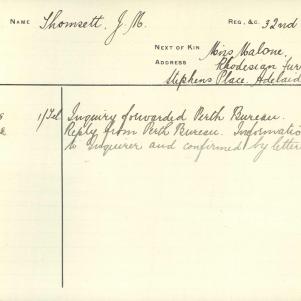 NAME Thomsett, J. M. REG. &C. 32nd
NEXT OF KIN Miss Malone,
ADDRESS Rhodesian fur
Stephens Place. Adelaid
1/Tel Inquiry forwarded Perth Bureau.
Reply from Perth Bureau. Informatio
to Inquirer and confirmed by letter